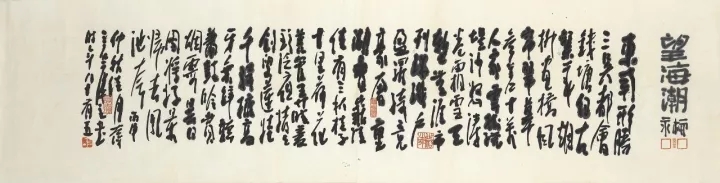 望海潮
柳永
東南形勝
三吳都會
錢塘自古
繁華煙
柳畫橋風
簾翠幕
參差十萬
人家雲樹繞
堤沙怒濤
卷霜雪天
塹無涯市
列珠璣戶
盈羅綺競
豪奢重
湖疊巘清
佳有三秋桂子
十里荷花
羌管弄晴菱
歌泛夜嬉嬉
釣叟蓮娃
千騎擁高
牙乘醉聽
簫鼓吟賞
煙霞異日
圖將好景
歸去鳳
池夸 丙申
仲秋
時年八十有五